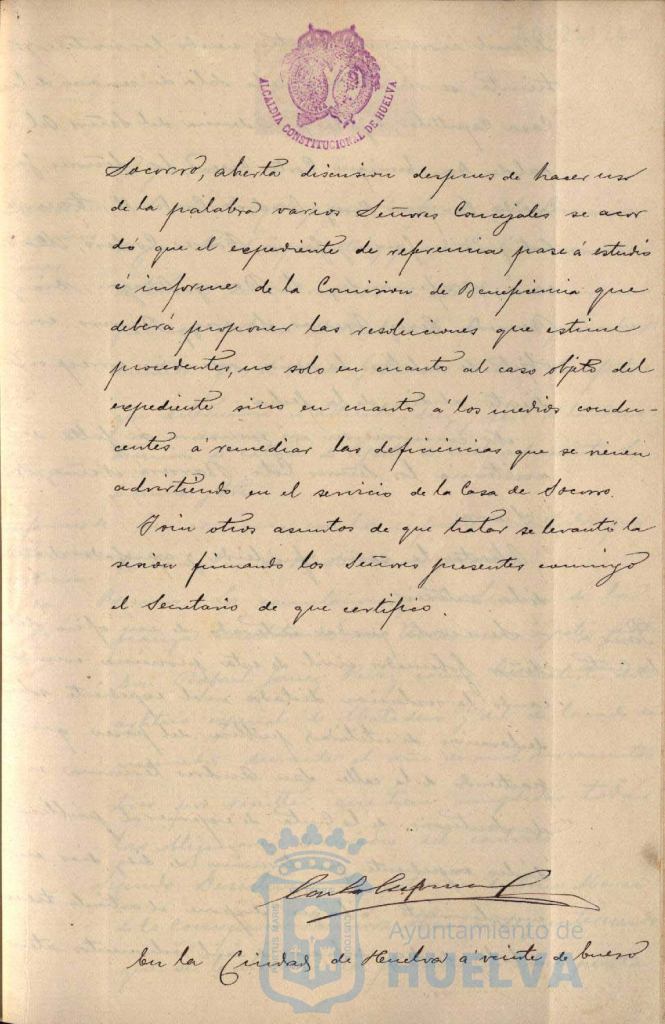 ALCALDIA CONSTITUCIONAL DE HUELVA
Socorro, abierta discusion despues de hacer uso
de la palabra varios Señores Concejales se acor
dó que el expediente de referencia pase á estudio
é informe de la Comision de Beneficencia que
deberá proponer las resoluciones que estime
procedentes, no solo en cuanto al caso objeto del
expediente sino en cuanto á los medios condu-
centes á remediar las deficiencias que se vienen
advirtiendo en el servicio de la Casa de Socorro.
Y sin otros asuntos de que tratar se levantó la
sesion firmando los Señores presentes conmigo
el Secretario de que certifico.
Ayuntamiento de
HUELVA
En la Ciudad de Huelva á veinte de Enero